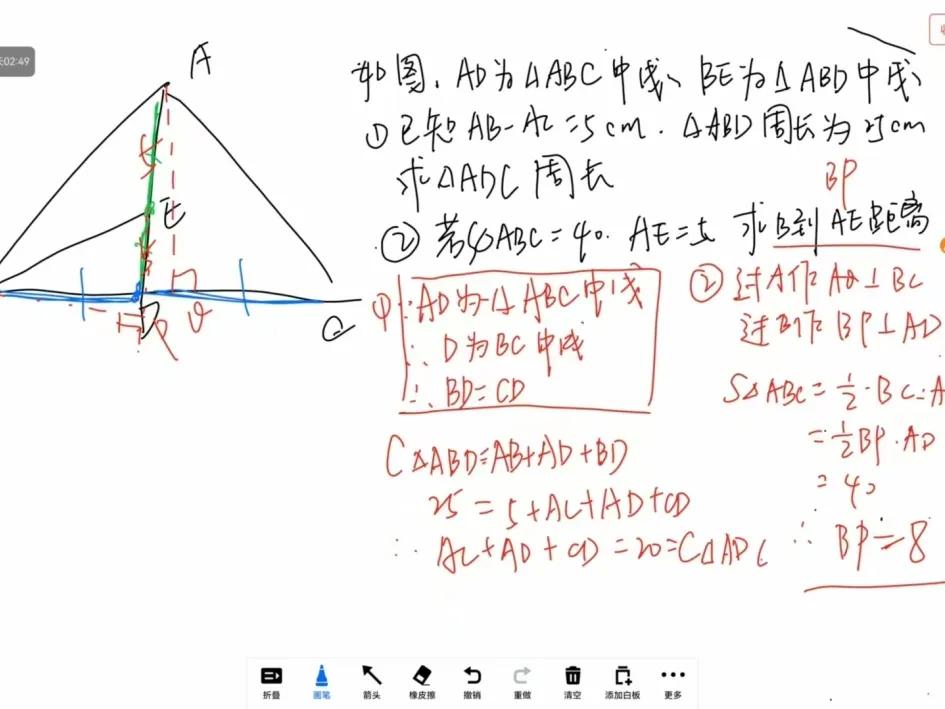 02:49
A
E
D
P
Q
C
如图,AD为△ABC中线、BE为△ABD中线
①已知AB-AC=5cm.△ABD周长为25cm
求△ADC周长
BP
②若S△ABC=40.AE=5 求B到AE距离
① ∵AD为△ABC中线
∴D为BC中线
∴BD=CD
C△ABD=AB+AD+BD
25=5+AC+AD+CD
∴AC+AD+CD=20=C△ADC
②过A作AQ⊥BC
过B作BP⊥AD
S△ABC=½·BC·A
=½BP·AD
=40
∴BP=8
折叠
画笔
箭头
橡皮擦
撤销
重做
清空
添加白板
更多